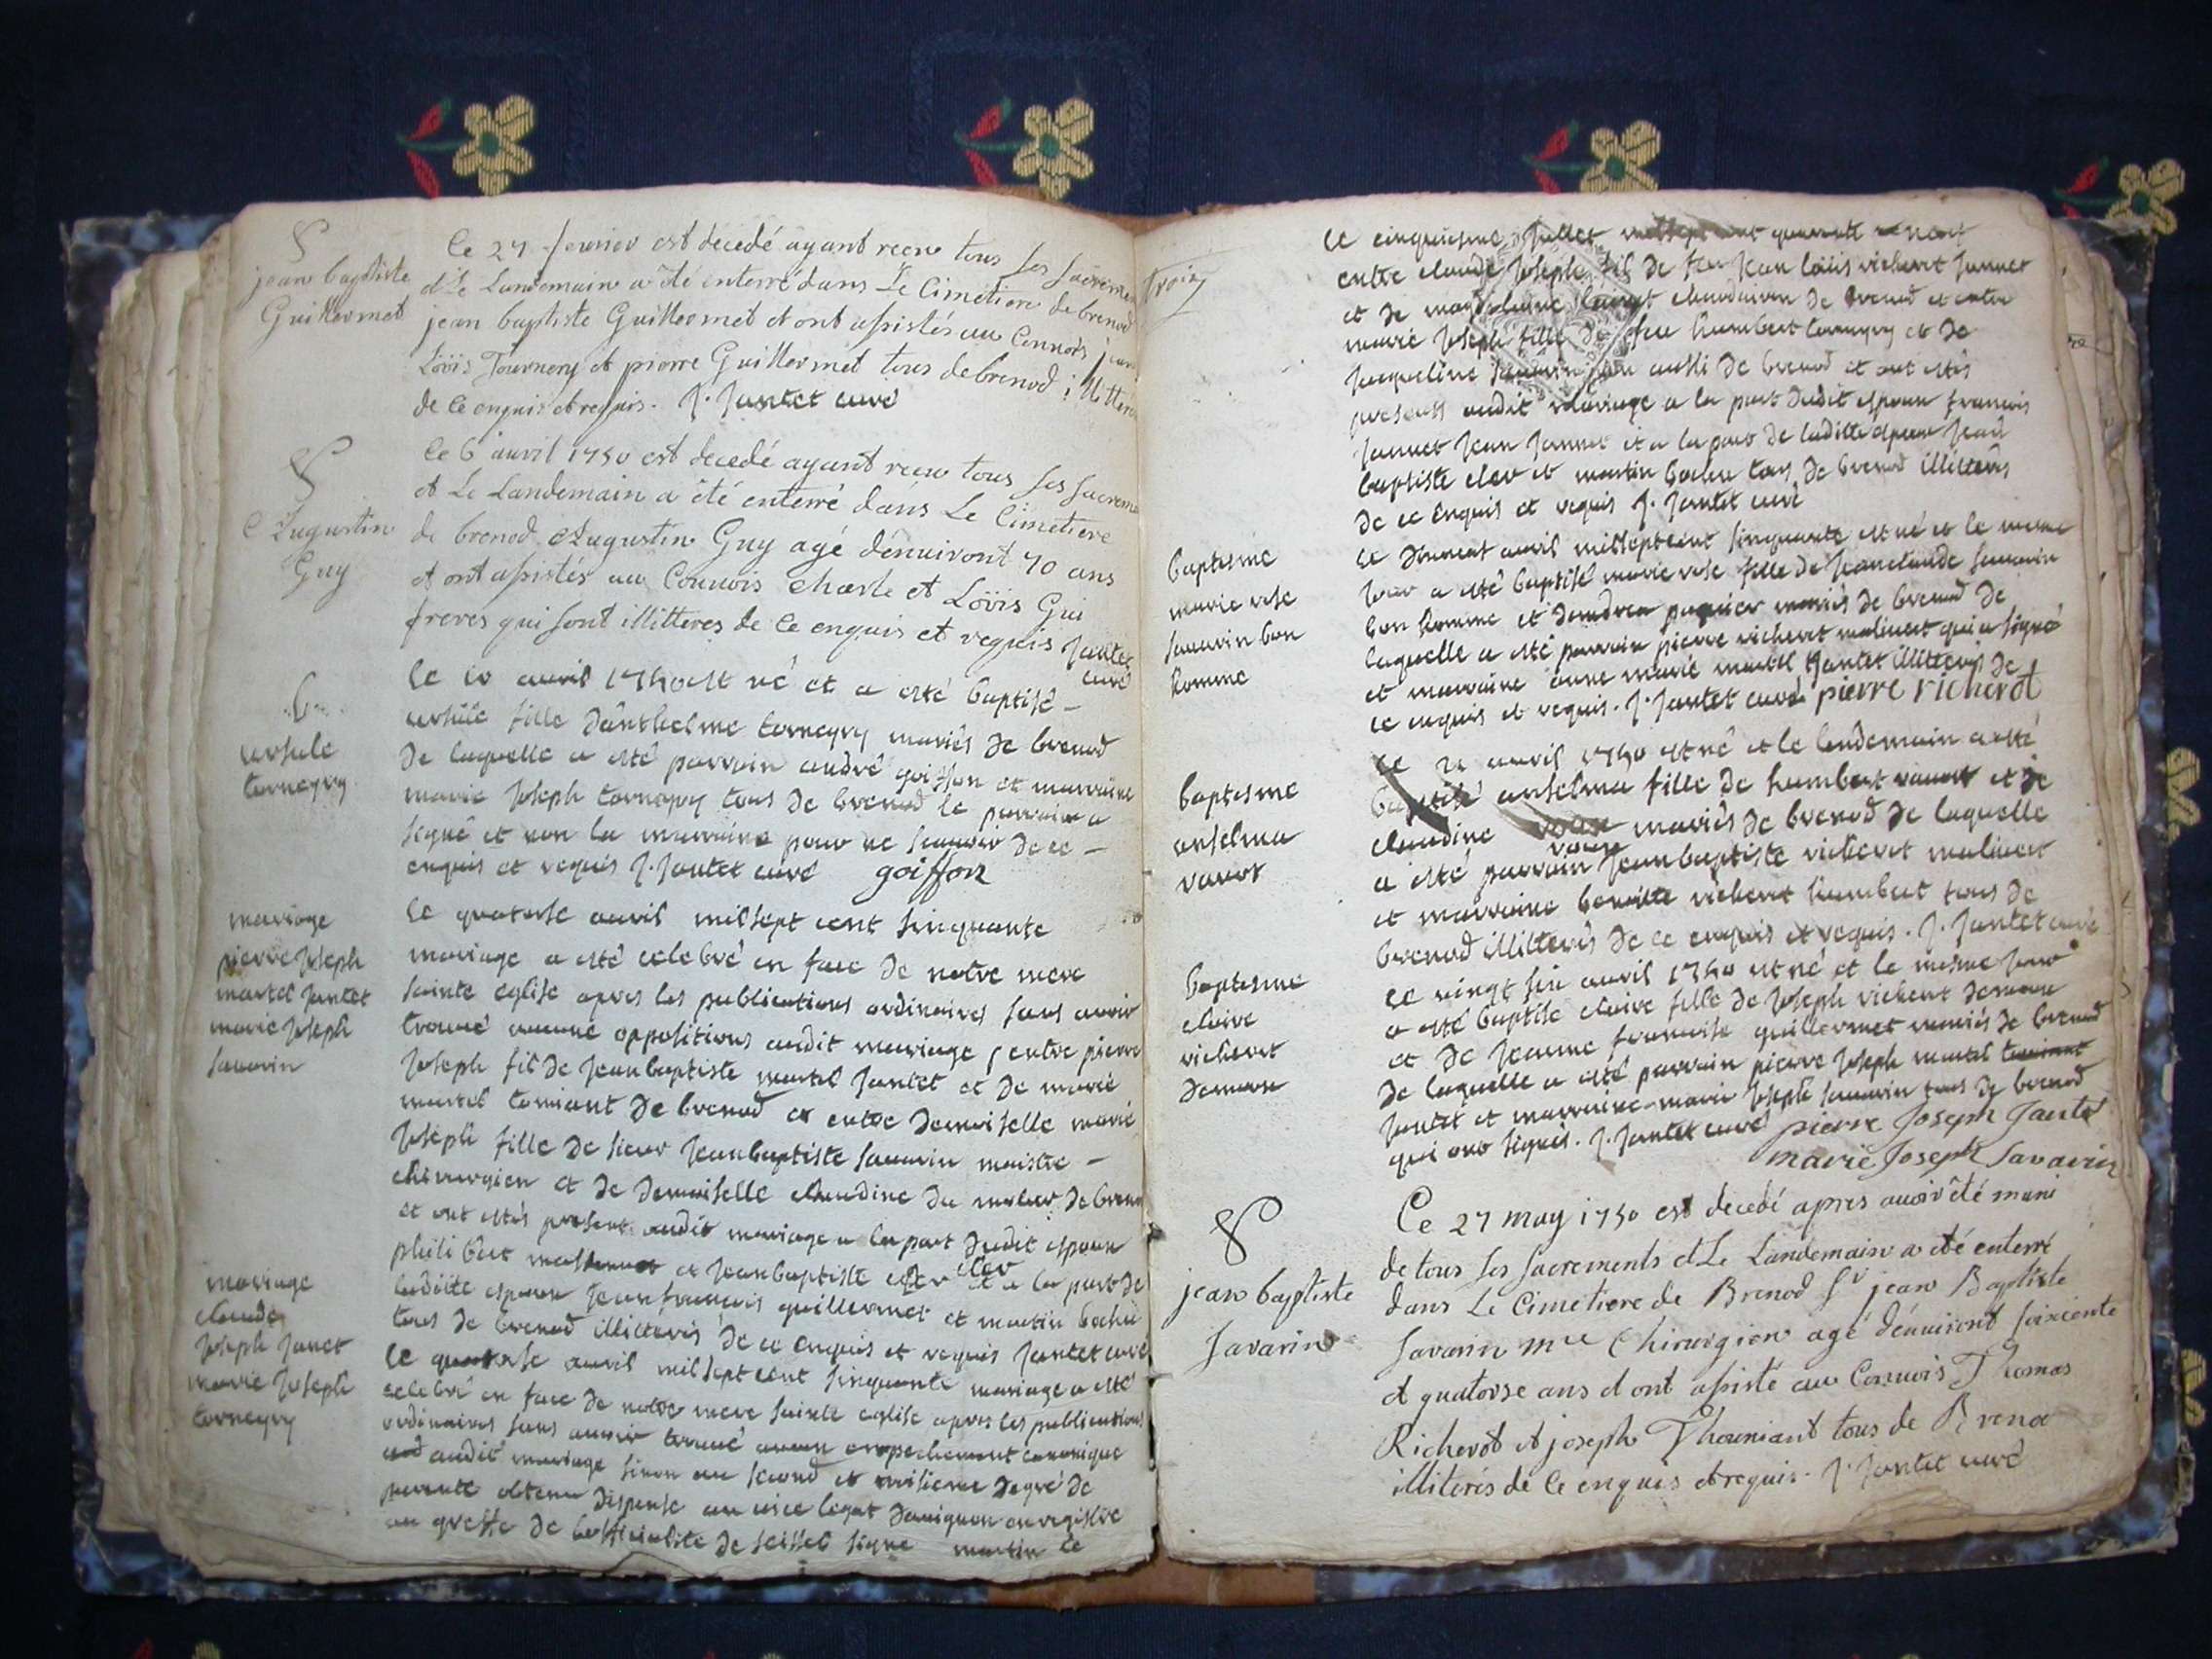 jean baptiste
Guillermet
Le 27 fevrier est decedé ayant recu tous ses sacremen
et Le Landemain a été enterré dans Le Cimetiere de brenod
jean baptiste Guillermet et ont assistés au Connois jean
Loüis Tournery et pierre Guillermet tous de brenod illittere
de ce enquis et requis. J. Jantet curé
Augustin
Guy
Le 6 avril 1750 est decedé ayant recu tous ses sacreme
et Le Landemain a été enterré dans Le Cimetiere
de brenod Augustin Guy agé dénuiront 70 ans
et ont assistés au Connois charle et Loüis Gui
freres qui sont illitteres de ce enquis et requis Jantet
curé
b
ursule
torneyry
le 10 auril 1750 est né et a esté baptisé
ursule fille danthelme torneyry mariés de brenod
de laquelle a esté parrain andré goiffon et marraine
marie Joseph torneyry tous de brenod le parrain a
signé et non la marraine pour ne scauoir de ce
enquis et requis J. Jantet curé goiffon
mariage
pierre Joseph
martel Jantet
marie Joseph
sauarin
le quatorse auril mil sept cent sinquante
mariage a esté celebré en face de notre mere
sainte eglise apres les publications ordinaires sans auoir
troué aucune oppositions audit mariage entre pierre
Joseph fil de Jean baptiste martel Jantet et de marie
martel touniant de brenod et entre demoiselle marie
Joseph fille de sieur Jean baptiste sauarin maistre
chirurgien et de demoiselle claudine du molar de breno
et ont estés present audit mariage a la part dudit espoux
philibert et Jean baptiste cler et a la part de
ladiite espouse Jean francois guillermet et martin bochu
tous de brenod illitterés de ce enquis et requis Jantet curé
mariage
claude
Joseph Janet
marie Joseph
torneyry
le quatorse auril mil sept cent sinquante mariage a esté
celebré en face de notre mere sainte eglise apres les publications
ordinaires sans auoir troué aucun empechement canonique
audit mariage sinon au second et troisieme degré de
parenté obtenu dispense au uice legat dauignon enregistre
au greffe de lofficialité de seissel signe martin le
trois
le cinquiesme Jullet mil sept cent quarante neuf
entre claude Joseph fil de feu Jean loüis richerot Jannet
et de magdelaine de brenod et entre
marie Joseph fille de feu humbert torneyry et de
Jacqueline aussi de brenod et ont estés
presents audit mariage a la part dudit espoux francois
Jannet Jean Jannet et a la part de laditte epouse Jean
baptiste cler et martin bochu tous de brenod illitterés
de ce enquis et requis J. Jantet curé
baptesme
marie rose
sauarin bon
homme
le auril mil sept cent sinquante est né et le mesme
Jour a esté baptisé marie rose fille de Jean claude sauarin
bon homme et dandrea paquier mariés de brenod de
laquelle a esté parrain pierre richerot malinert qui a signé
et marraine anne marie martel Jantet illitterés de
ce enquis et requis. J. Jantet curé pierre richerot
baptesme
anselma
rauot
le 21 auril 1750 est né et le lendemain a esté
baptisé anselma fille de humbert rauot et de
claudine mariés de brenod de laquelle
a esté parrain Jean baptiste richerot malinert
et marraine benoitte richerot humbert tous de
brenod illitterés de ce enquis et requis. J. Jantet curé
baptesme
claire
richerot
demorse
le vingt six auril 1750 est né et le mesme Jour
a esté baptisé claire fille de Joseph richerot
et de Jeanne francoise guillermet mariés de brenod
de laquelle a esté parrain pierre Joseph martel
Jantet et marraine marie Joseph sauarin tous de brenod
qui ont signés. J. Jantet curé pierre Joseph Jantet
marie Joseph Savarin
jean baptiste
Savarin
Le 27 may 1750 est decedé apres auoir été muni
de tous ses sacrements et Le Landemain a été enterré
dans Le Cimetiere de Brenod Sr jean Baptiste
Savarin mre Chirurgien agé dénuiront soixiente
et quatorse ans et ont assisté au Connois Thomas
Richerot et joseph Thouniant tous de Brenod
illiterés de ce enquis et requis. J. Jantet curé